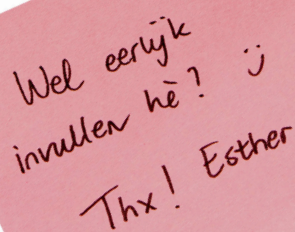 Wel eerlijk
invullen hè? :)
Thx! Esther